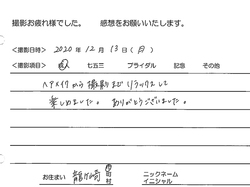 撮影お疲れ様でした。 感想をお願いいたします。
<撮影日時> 2020年12月13日(月)
<撮影項目> 成人 七五三 ブライダル 記念 その他
ヘアメイクから撮影までリラックスして
楽しめました。ありがとうございました。
お住まい 龍ヶ崎 市町村 ニックネーム イニシャル